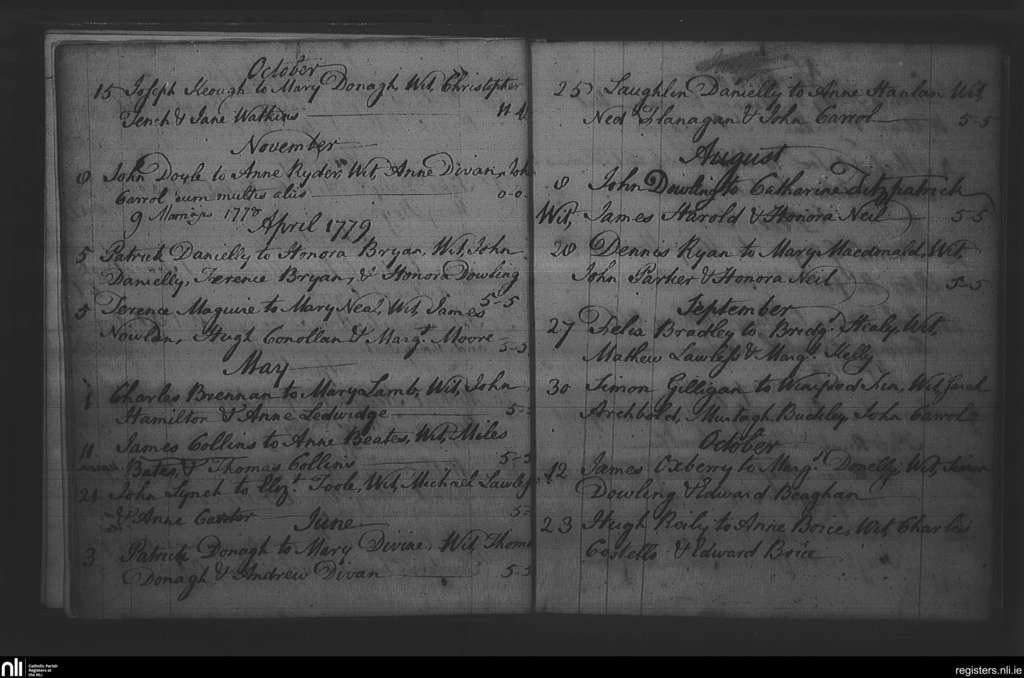 October
15 Joseph Keough to Mary Donagh, Wit, Christopher
Tench & Jane Watkins
November
8 John Doyle to Anne Ryder, Wit, Anne Divan, Joh
Carrol, cum multis aliis 0-0
9 1778
April 1779
5 Patrick Danielly to Honora Bryan, Wit, John
Danielly, Terence Bryan, & Honora Dowling
5-5
5 Terence Maguire to Mary Neal, Wit, James
Nowlan, Hugh Conollan & Margt. Moore 5-5
May
1 Charles Brennan to Mary Lamb, Wit, John
Hamilton & Anne Ledwidge 5-
11 James Collins to Anne Beates, Wit, Miles
Bates, & Thomas Collins 5-5
21 John Lynch to Elizt. Toole, Wit, Michael Lawless
& Anne 5-
June
3 Patrick Donagh to Mary Divine, Wit, Thoms
Donagh & Andrew Divan 5-5
25 Laughlin Danielly to Anne Hanlan Wit,
Ned Flanagan & John Carrol 5-5
August
8 John Dowling to Catharine Fitzpatrick
Wit, James Harold & Honora Neil 5-5
20 Dennis Ryan to Mary Macdonald, Wit,
John Parker & Honora Neil 5-5
September
27 Felix Bradley to Bridgt. Healy, Wit,
Mathew Lawless & Margt. Kelly
30 Simon Gilligan to Winifred Wit, Sarah
Archbold, Murtagh Buckley, John Carrol
October
12 James Oxberry to Margt. Donelly, Wit, Simon
Dowling & Edward Beaghan
23 Hugh Reily to Anne Boice, Wit, Charles
Costello & Edward Brice
nli
Catholic Parish
Registers at
the NLI
registers.nli.ie